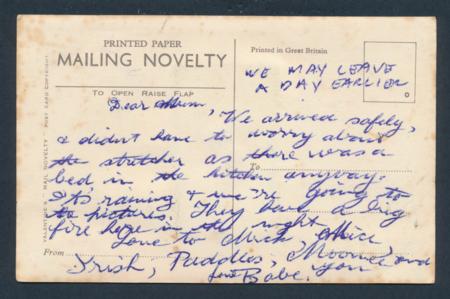 PRINTED PAPER
MAILING NOVELTY
TO OPEN RAISE FLAP
Printed in Great Britain
WE MAY LEAVE
A DAY EARLIER
Dear Mum,
We arrived safely,
& didn't have to worry about
the stretcher as there was a
bed in the kitchen anyway.
Its raining & we're going to
to pictures. They have a big
fire here in the night
Love to Mick,
Trish, Puddles, and
Babe. you
To
From
VALENTINE'S MAIL NOVELTY POST CARD COPYRIGHT